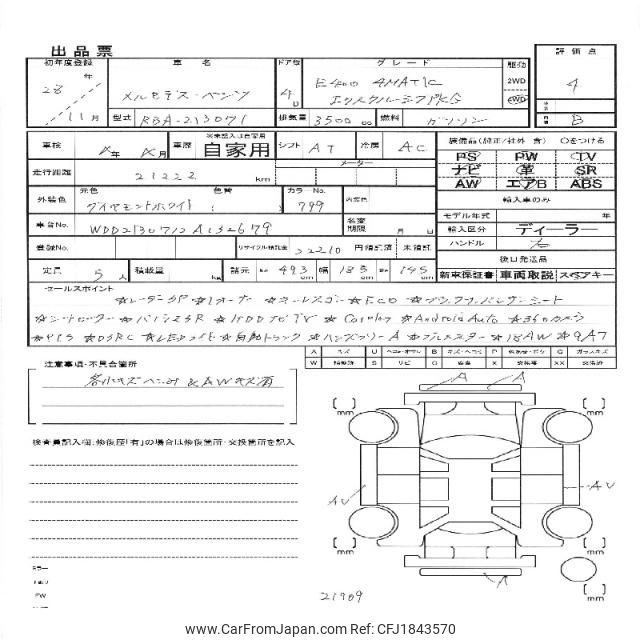 出品票
初年度登録 車名 ドア数 グレード 駆動 評価点
28年 メルセデス・ベンツ 4D E400 4MATIC 2WD 4WD 4
エクスクルーシブ
11月 型式 RBA-213071 排気量 3500 cc 燃料 ガソリン B
車検 年 月 車歴 ※未記入は自家用 自家用 シフト AT 冷房 AC 装備品(純正/社外 含) ○をつける
PS PW TV
走行距離 21222 km メーター ナビ 革 SR
AW エアB ABS
外装色 元色 色替 カラーNo. 内装色 輸入車のみ
ダイヤモンドホワイト ( ) 799
モデル年式 年
車台No. WDD2130712A132679 名変期限 月 日 輸入区分 ディーラー
登録No. リサイクル預託金 22210 円 預託済 未預託 ハンドル 右
後日発送品
定員 5人 積載量 kg 諸元 長 493 cm 幅 185 cm 高 145 cm 新車保証書 車両取説 スペアキー
セールスポイント
☆レーダーSP☆1オーナー☆キールスゴー☆ECO☆
☆シートヒーター☆ ☆HDDナビTV☆Carplay☆Android Auto☆360カメラ
☆PTS☆DSRC☆LEDライト☆自動トランク☆ハンズフリーA☆ ☆18AW☆9AT
A キズ U ヘコ・オウレ B キズ・ヘコミ P G ガラスキズ
W S サビ C X 交換 XX 交換済
注意事項・不具合箇所
各小キズヘコミ&AWキズ有
検査員記入欄:修復歴「有」の場合は修復箇所・交換箇所を記入
A A
mm mm
AU AU
mm mm
A
21909
www.CarFromJapan.com REF ID:CFJ1843570